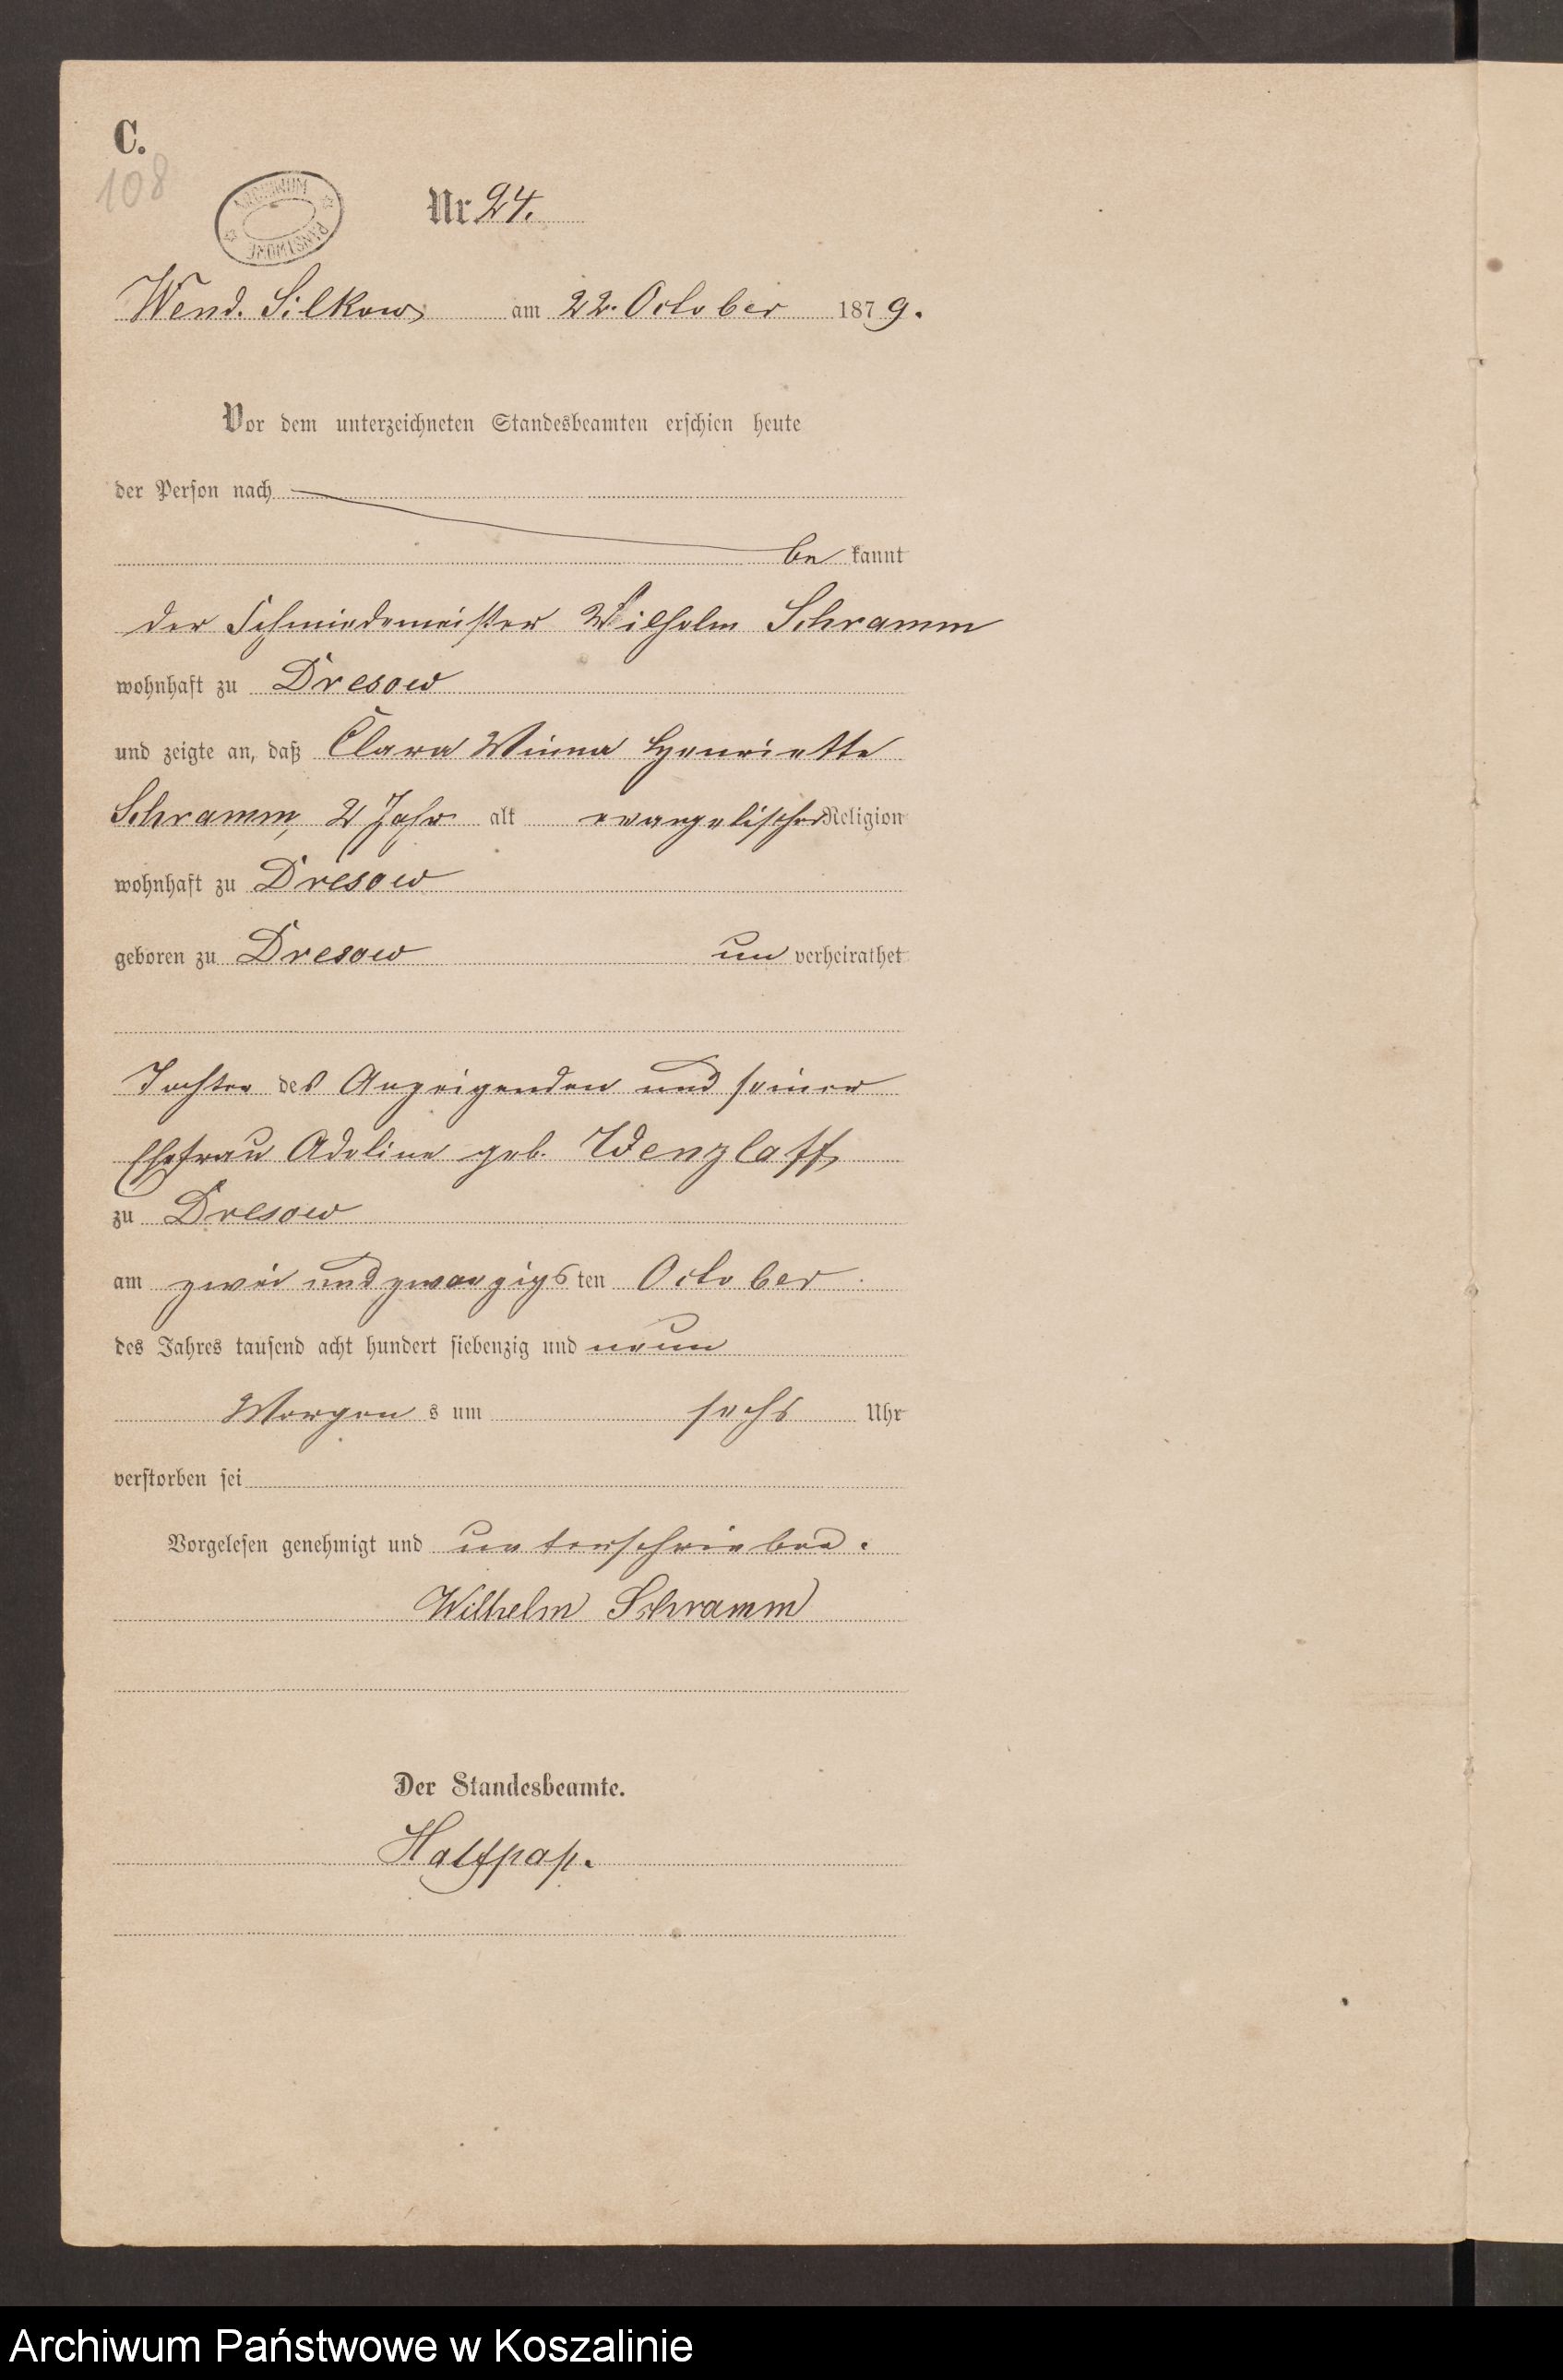 C.
108
ARCHIWUM PAŃSTWOWE
Nr 24.
Wend. Silkow am 22. October 1879.
Vor dem unterzeichneten Standesbeamten erschien heute
der Person nach
be kannt
der Schmiedemeister Wilhelm Schramm
wohnhaft zu Dresow
und zeigte an, daß Clara Minna Henriette
Schramm, 2 Jahr alt evangelischer Religion
wohnhaft zu Dresow
geboren zu Dresow un verheirathet
Tochter des Anzeigenden und seiner
Ehefrau Adeline geb. Wenzlaff
zu Dresow
am zwei und zwanzigsten October
des Jahres tausend acht hundert siebenzig und neun
Morgen s um sechs Uhr
verstorben sei
Vorgelesen genehmigt und unterschrieben.
Wilhelm Schramm
Der Standesbeamte.
Halfpap.
Archiwum Państwowe w Koszalinie